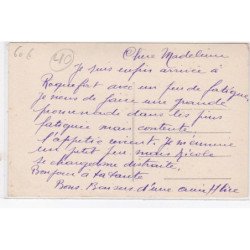 606
40
Chère Madeleine
Je suis enfin arrivée à
Roquefort avec un peu de fatigue
Je viens de faire une grande
promenade dans les pins
fatiguée mais contente
l'appétit revient. Je m'ennuie
un petit peu mais
se change distraite,
Bonjour à ta tante
Bons Baisers d'une amie